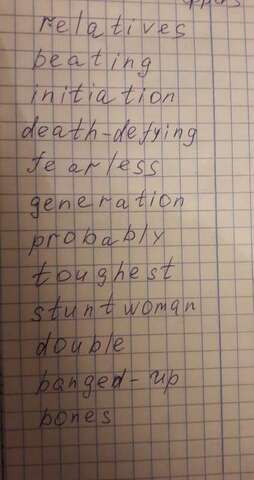 relatives
beating
initiation
death-defying
fearless
generation
probably
toughest
stunt woman
double
banged-up
bones